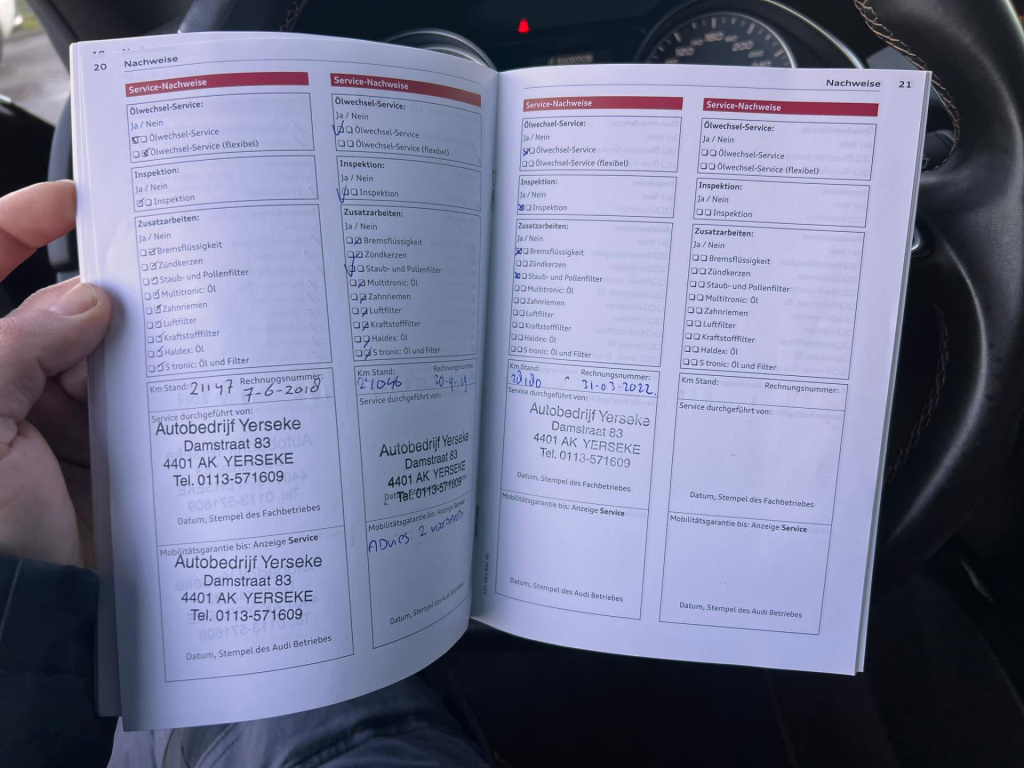 20 Nachweise
Service-Nachweise
Ölwechsel-Service:
Ja / Nein
Ölwechsel-Service
Ölwechsel-Service (flexibel)
Inspektion:
Ja / Nein
Inspektion
Zusatzarbeiten:
Ja / Nein
Bremsflüssigkeit
Zündkerzen
Staub- und Pollenfilter
Multitronic: Öl
Zahnriemen
Luftfilter
Kraftstofffilter
Haldex: Öl
S tronic: Öl und Filter
Km Stand: 21147 Rechnungsnummer:
7-6-2018
Service durchgeführt von:
Autobedrijf Yerseke
Damstraat 83
4401 AK YERSEKE
Tel. 0113-571609
Datum, Stempel des Fachbetriebes
Mobilitätsgarantie bis: Anzeige Service
Autobedrijf Yerseke
Damstraat 83
4401 AK YERSEKE
Tel. 0113-571609
Datum, Stempel des Audi Betriebes
Service-Nachweise
Ölwechsel-Service:
Ja / Nein
Ölwechsel-Service
Ölwechsel-Service (flexibel)
Inspektion:
Ja / Nein
Inspektion
Zusatzarbeiten:
Ja / Nein
Bremsflüssigkeit
Zündkerzen
Staub- und Pollenfilter
Multitronic: Öl
Zahnriemen
Luftfilter
Kraftstofffilter
Haldex: Öl
S tronic: Öl und Filter
Km Stand: Rechnungsnummer:
Service durchgeführt von:
Autobedrijf Yerseke
Damstraat 83
4401 AK YERSEKE
Tel. 0113-571609
Mobilitätsgarantie bis: Anzeige Service
Advies: 2
Datum, Stempel des Audi Betriebes
Nachweise 21
Service-Nachweise
Ölwechsel-Service:
Ja / Nein
Ölwechsel-Service
Ölwechsel-Service (flexibel)
Inspektion:
Ja / Nein
Inspektion
Zusatzarbeiten:
Ja / Nein
Bremsflüssigkeit
Zündkerzen
Staub- und Pollenfilter
Multitronic: Öl
Zahnriemen
Luftfilter
Kraftstofffilter
Haldex: Öl
S tronic: Öl und Filter
Km Stand: Rechnungsnummer:
31-03-2022
Service durchgeführt von:
Autobedrijf Yerseke
Damstraat 83
4401 AK YERSEKE
Tel. 0113-571609
Datum, Stempel des Fachbetriebes
Mobilitätsgarantie bis: Anzeige Service
Datum, Stempel des Audi Betriebes
Service-Nachweise
Ölwechsel-Service:
Ja / Nein
Ölwechsel-Service
Ölwechsel-Service (flexibel)
Inspektion:
Ja / Nein
Inspektion
Zusatzarbeiten:
Ja / Nein
Bremsflüssigkeit
Zündkerzen
Staub- und Pollenfilter
Multitronic: Öl
Zahnriemen
Luftfilter
Kraftstofffilter
Haldex: Öl
S tronic: Öl und Filter
Km Stand: Rechnungsnummer:
Service durchgeführt von:
Datum, Stempel des Fachbetriebes
Mobilitätsgarantie bis: Anzeige Service
Datum, Stempel des Audi Betriebes